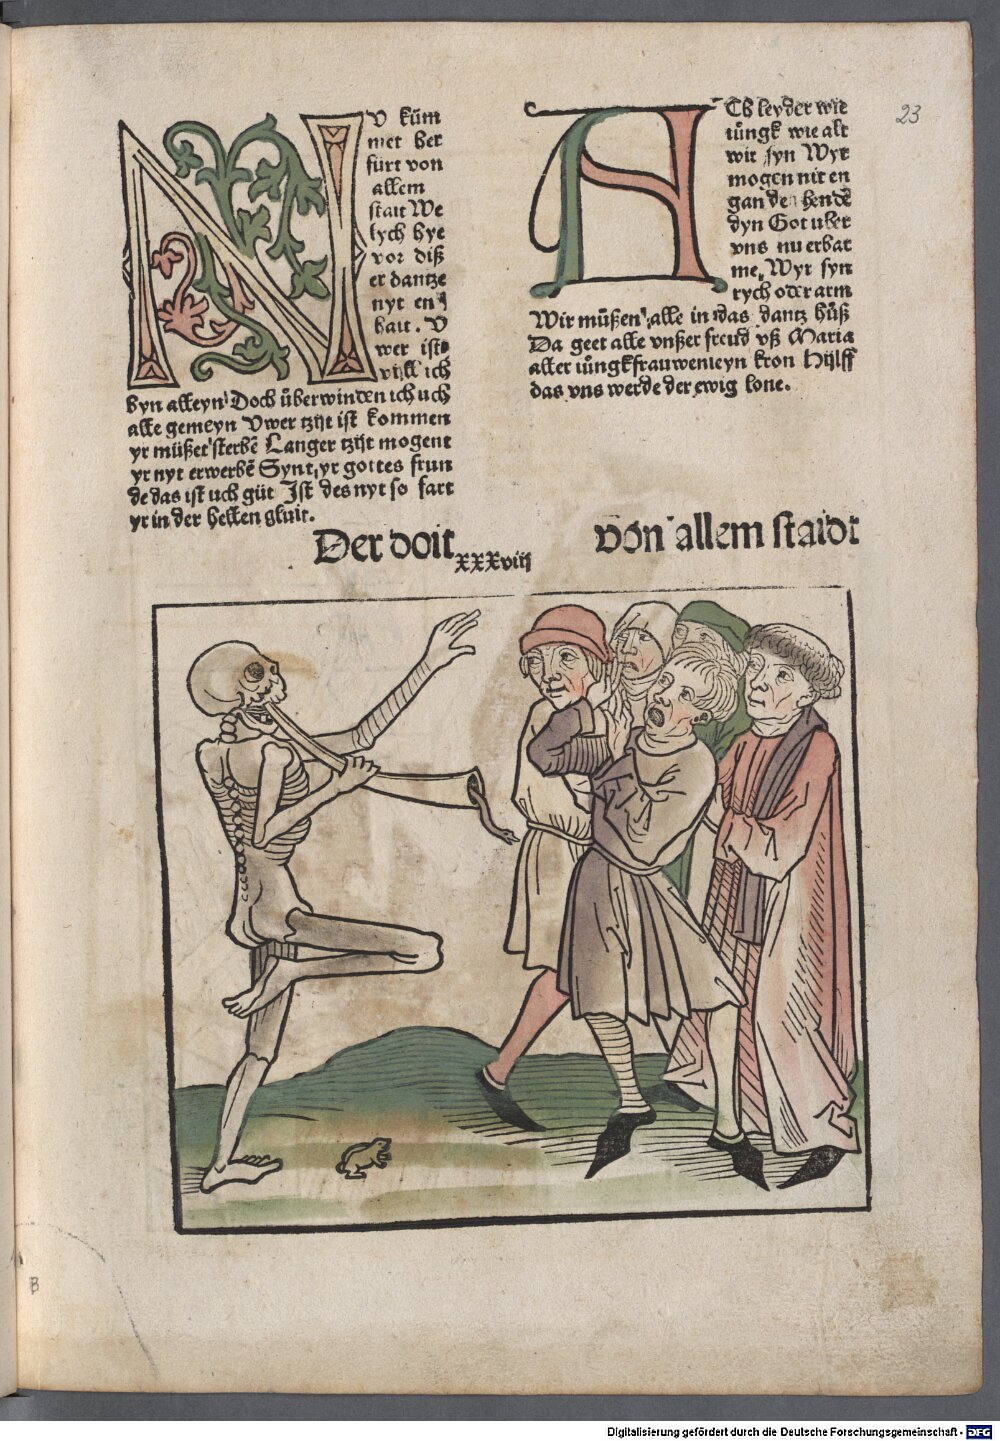 NV kūm
met her
fürt von
allem
stait We
lych hye
vor diß
er dantze
nyt en
hait. V
wer ist
vijll ich
byn alleyn Doch überwinden ich uch
alle gemeyn Vwer tzijt ist kommen
yr müßet sterbē Langer tzijt mogent
yr nyt erwerbē Synt yr gottes frun
de das ist uch güt Ist des nyt so fart
yr in der hellen gluit.
ACh leyder wie
iūngk wie alt
wir syn Wyr
mogen nit en
gan den henden
dyn Got uber
vns nu erbar
me, Wyr syn
rych oder arm
Wir müßen alle in das dantz hüß
Da geet alle vnßer freud vß Maria
aller iūngkfrauwen eyn kron Hijlff
das vns werde der ewig lone.
23
Der doit
xxxviij
von allem staidt
B
Digitalisierung gefördert durch die Deutsche Forschungsgemeinschaft - DFG